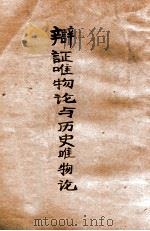 辩証唯物论与历史唯物论